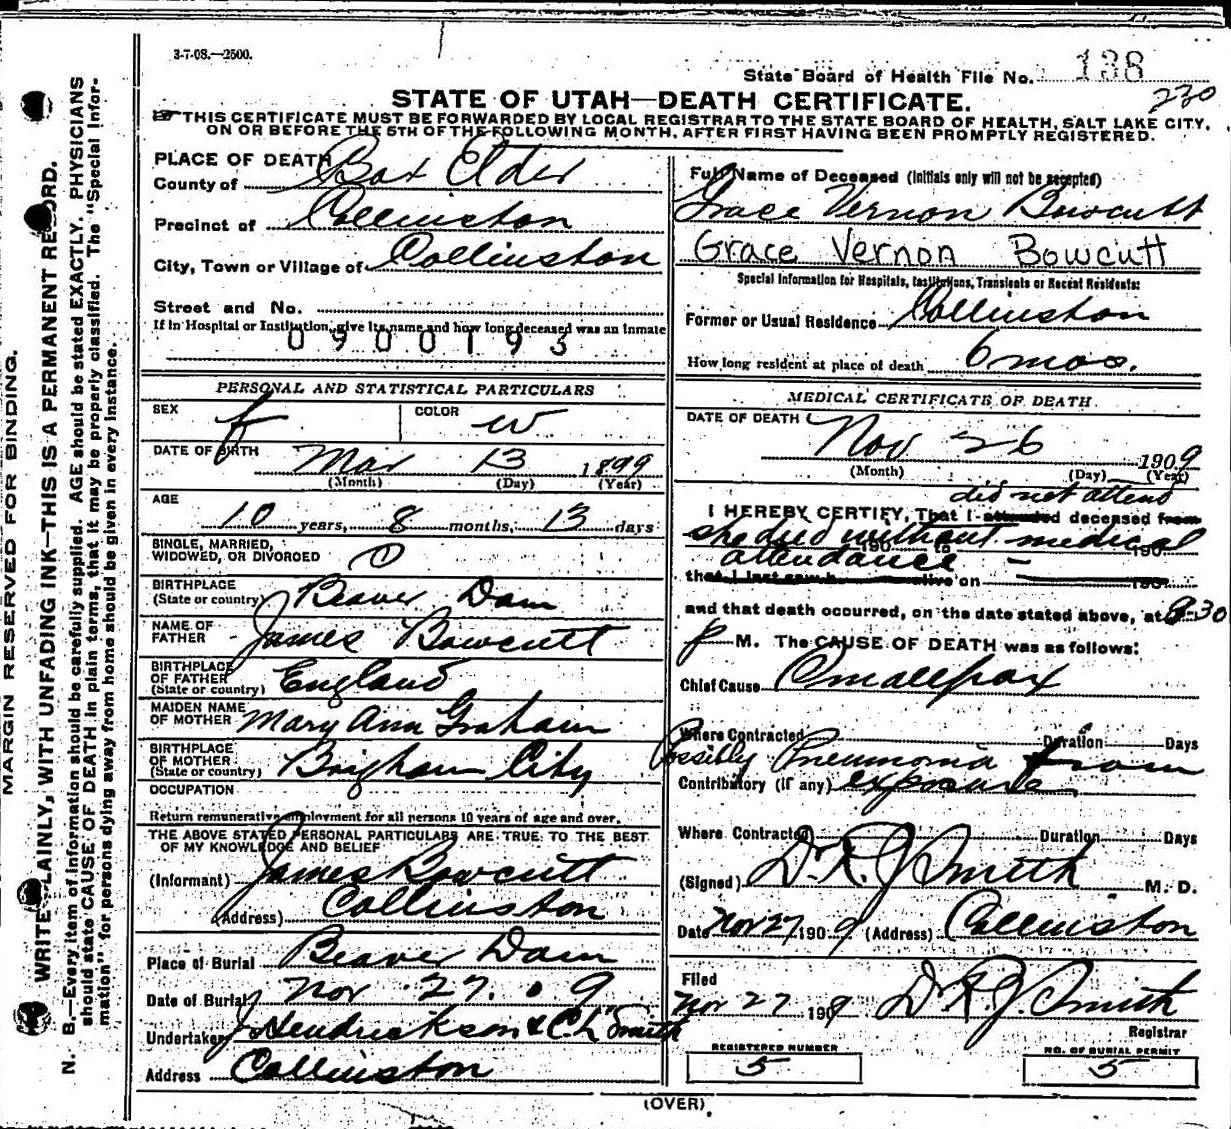 3-7-08.—2500.
State Board of Health File No. 138
230
STATE OF UTAH—DEATH CERTIFICATE.
THIS CERTIFICATE MUST BE FORWARDED BY LOCAL REGISTRAR TO THE STATE BOARD OF HEALTH, SALT LAKE CITY,
ON OR BEFORE THE 5TH OF THE FOLLOWING MONTH, AFTER FIRST HAVING BEEN PROMPTLY REGISTERED.
MARGIN RESERVED FOR BINDING.
WRITE PLAINLY, WITH UNFADING INK—THIS IS A PERMANENT RECORD.
N. B.—Every item of information should be carefully supplied. AGE should be stated EXACTLY. PHYSICIANS
should state CAUSE OF DEATH in plain terms, that it may be properly classified. The "Special Infor-
mation" for persons dying away from home should be given in every instance.
PLACE OF DEATH
County of Box Elder
Precinct of Collinston
City, Town or Village of Collinston
Street and No.
If in Hospital or Institution, give its name and how long deceased was an inmate
0900193
PERSONAL AND STATISTICAL PARTICULARS
SEX f COLOR w
DATE OF BIRTH Mar 13 1899
(Month) (Day) (Year)
AGE
10 years, 8 months, 13 days
SINGLE, MARRIED,
WIDOWED, OR DIVORCED
BIRTHPLACE
(State or country) Beaver Dam
NAME OF
FATHER James Bowcutt
BIRTHPLACE
OF FATHER
(State or country) England
MAIDEN NAME
OF MOTHER Mary Ann Graham
BIRTHPLACE
OF MOTHER
(State or country) Brigham City
OCCUPATION
Return remunerative employment for all persons 10 years of age and over.
THE ABOVE STATED PERSONAL PARTICULARS ARE TRUE TO THE BEST
OF MY KNOWLEDGE AND BELIEF
(Informant) James Bowcutt
(Address) Collinston
Place of Burial Beaver Dam
Date of Burial Nov 27. 09
Undertaker J Hendrickson & Ch Smith
Address Collinston
Full Name of Deceased (Initials only will not be accepted)
Grace Vernon Bowcutt
Grace Vernon Bowcutt
Special Information for Hospitals, Institutions, Transients or Recent Residents:
Former or Usual Residence Collinston
How long resident at place of death 6 mos.
MEDICAL CERTIFICATE OF DEATH
DATE OF DEATH
Nov 26 1909
(Month) (Day) (Year)
did not attend
I HEREBY CERTIFY, That I attended deceased from
she died without medical
190 to 190
attendance
that I last saw h alive on 190
and that death occurred, on the date stated above, at 9-30
p M. The CAUSE OF DEATH was as follows:
Chief Cause Smallpox
Where Contracted Duration Days
Possibly Pneumonia from
Contributory (if any) exposure
Where Contracted Duration Days
(Signed) Dr R J Smith M. D.
Date Nov 27 1909 (Address) Collinston
Filed
Nov 27 1909 Dr R J Smith
Registrar
REGISTERED NUMBER
5
NO. OF BURIAL PERMIT
5
(OVER)